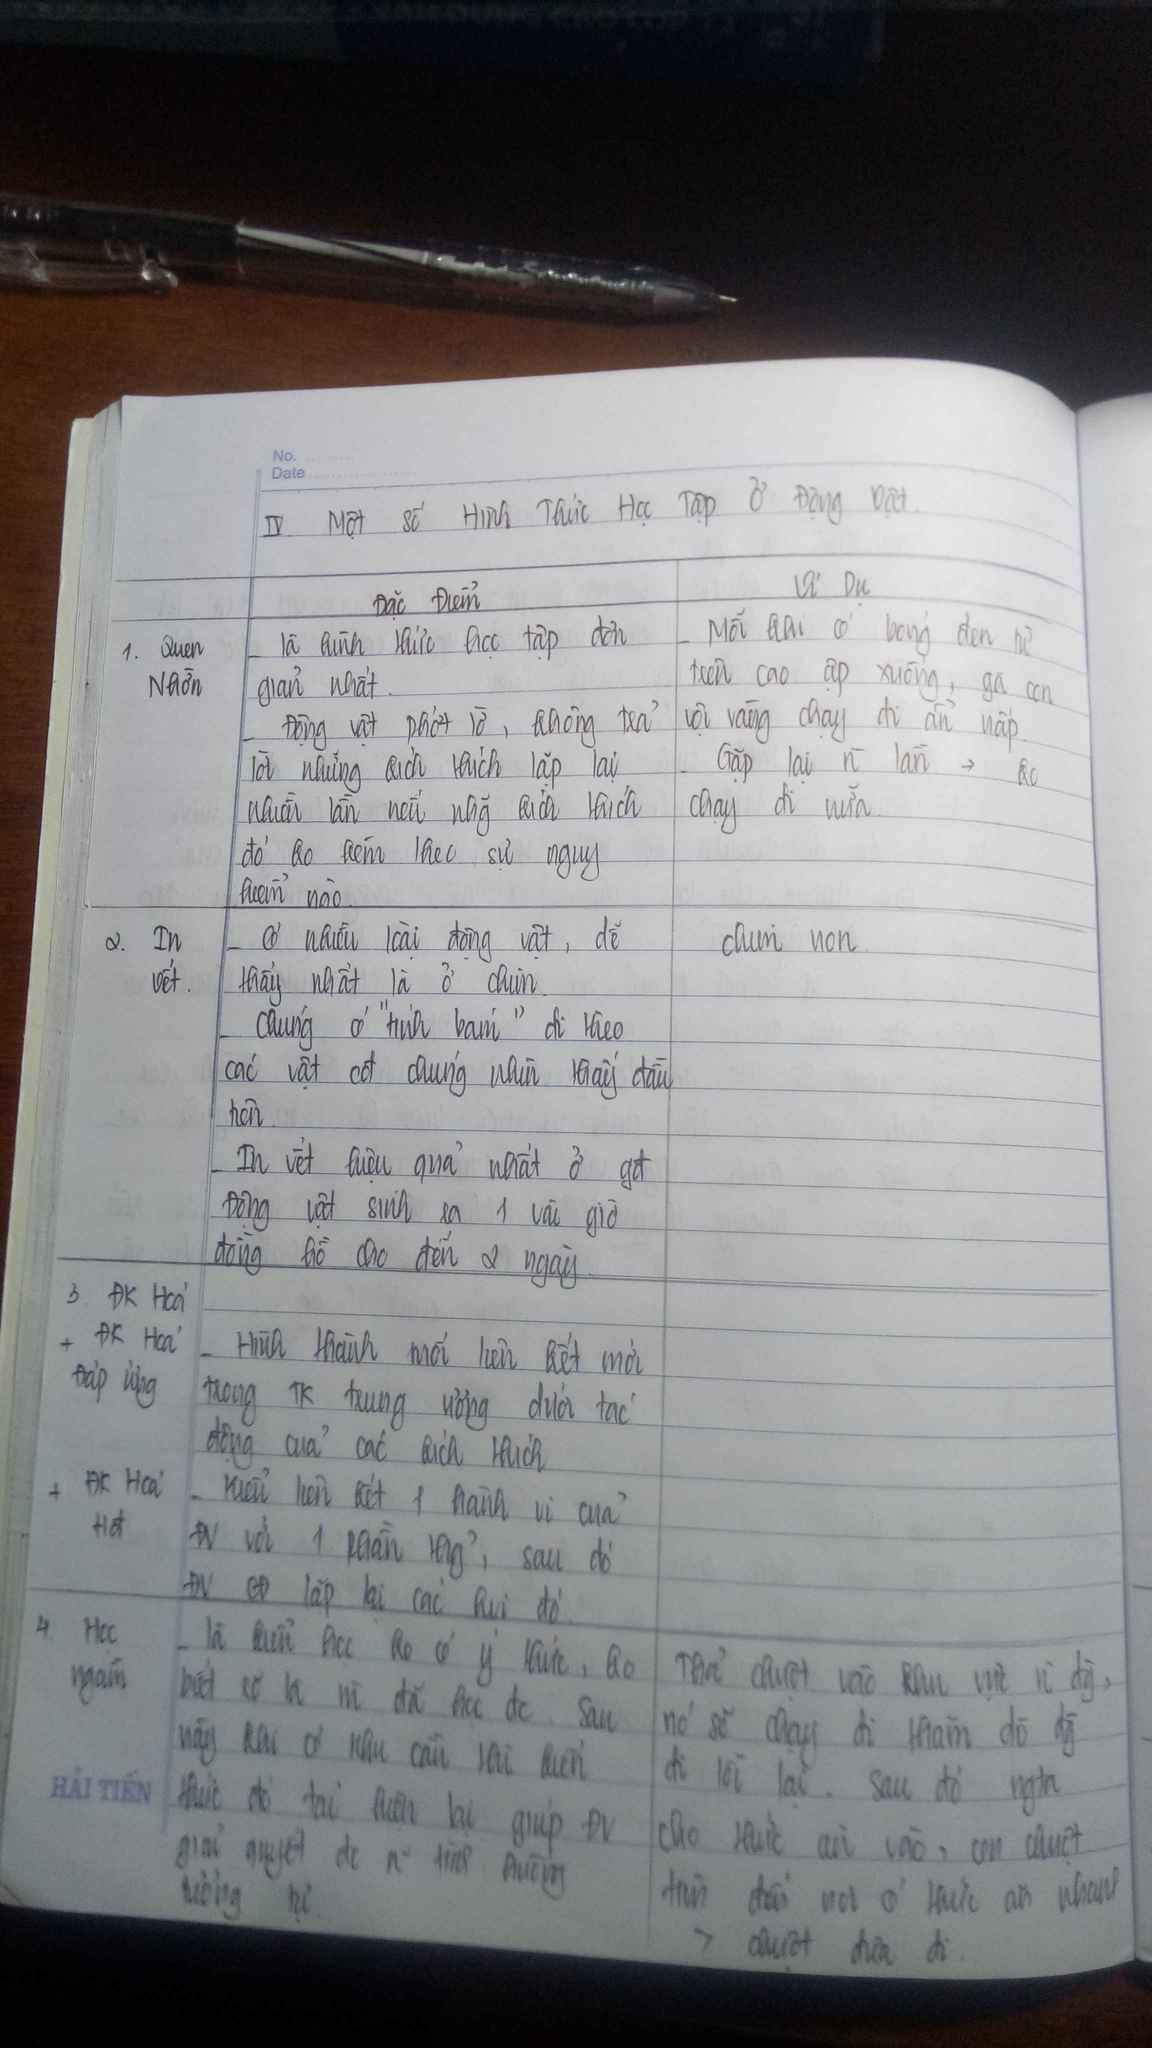 No.
Date
IV Một số Hình Thức Học Tập Ở Động Vật.
Đặc Điểm
Ví Dụ
1. Quen
Nhờn
- là hình thức học tập đơn
giản nhất.
- Động vật phớt lờ, không trả
lời những kích thích lặp lại
nhiều lần nếu những kích thích
đó ko kèm theo sự nguy
hiểm nào
- Mỗi khi có bóng đen từ
trên cao ập xuống, gà con
vội vàng chạy đi ẩn nấp
- Gặp lại n lần → ko
chạy đi nữa
2. In
vết.
- Có nhiều loài động vật, dễ
thấy nhất là ở chim.
- Chúng có "tính bám" đi theo
các vật cđ chúng nhìn thấy đầu
tiên.
- In vết hiệu quả nhất ở gđ
Động vật sinh ra 1 vài giờ
đồng hồ cho đến 2 ngày
chim non
3. ĐK Hoá
+ ĐK Hoá
Đáp ứng
- Hình thành mối liên kết mới
trong TK trung ương dưới tác
động của các kích thích
+ ĐK Hoá
Hđ
- Kiểu liên kết 1 hành vi của
ĐV với 1 phần thg', sau đó
ĐV CĐ lặp lại các hvi đó.
4. Học
ngầm
- là kiểu học ko có ý thức, ko
biết rõ là mì đã học đc. Sau
này khi có nhu cầu thì kiến
thức đó tái hiện lại giúp ĐV
giải quyết đc n~ tình huống
tương tự.
Thả chuột vào khu vực
nó sẽ chạy đi thăm dò
đi lối lại. sau đó
cho thức ăn vào, con chuột
tìm đến nơi có thức ăn nhanh
> chuột chưa đi.
HẢI TIẾN